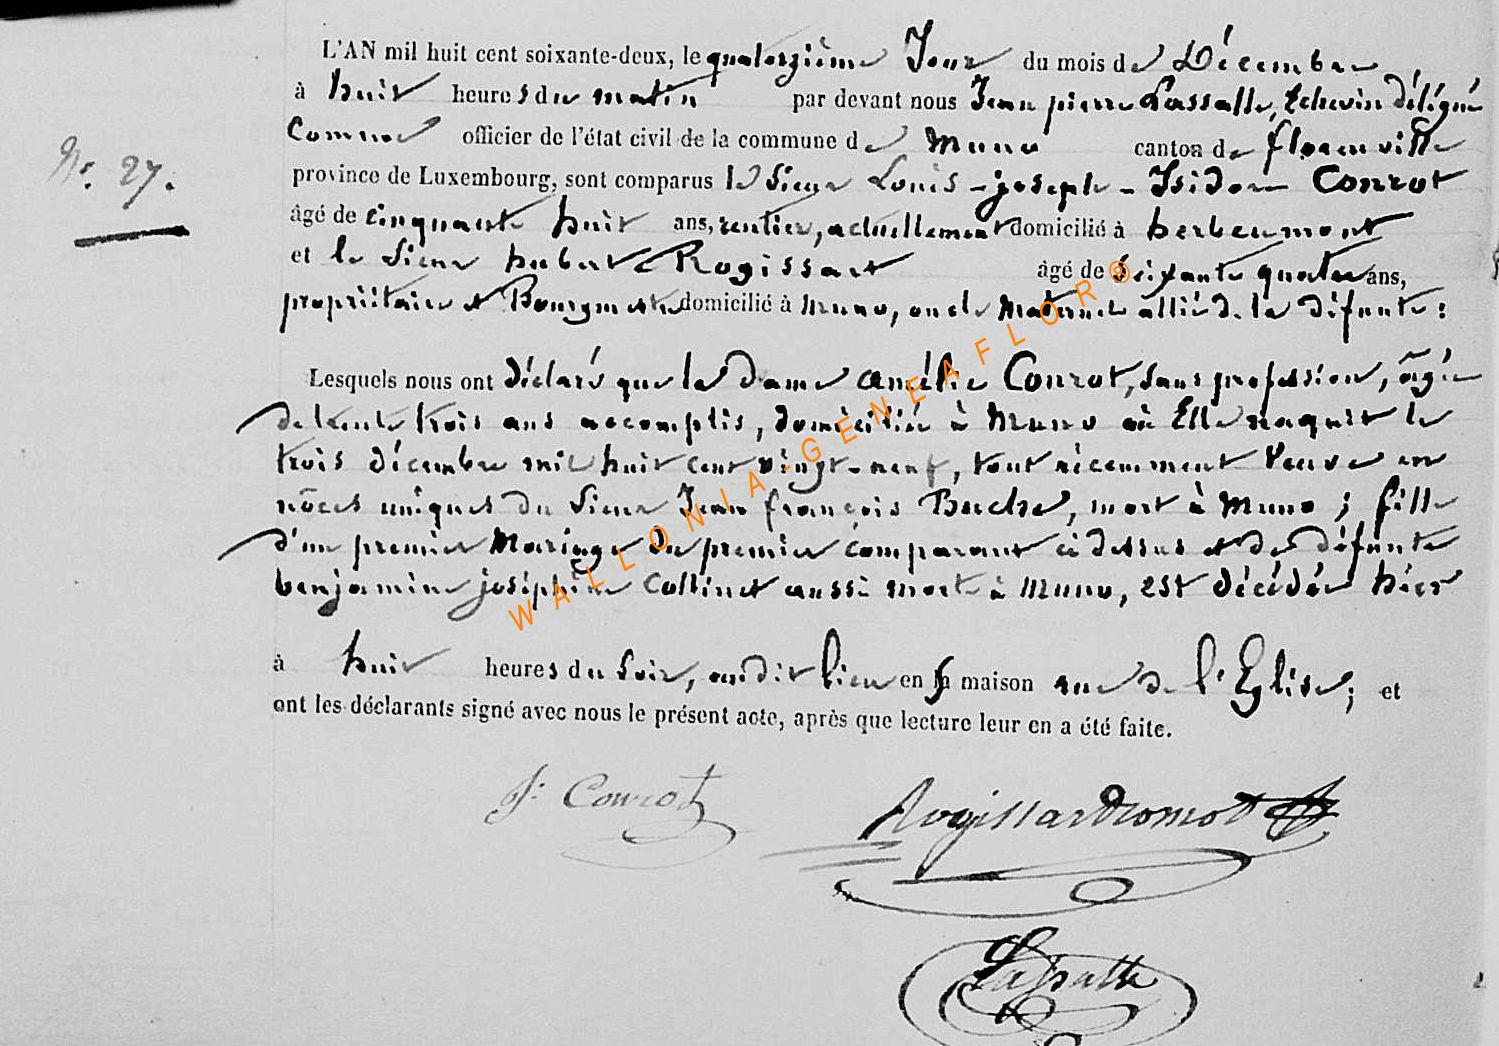 L'AN mil huit cent soixante-deux, le quatorzième Jour du mois de Décembre
à huit heures du matin par devant nous Jean pierre Lassalle, Echevin délégué
comme officier de l'état civil de la commune de Muno canton de florenville
N°. 27.
province de Luxembourg, sont comparus le Sieur Louis-joseph-Isidore Conrot
âgé de cinquante huit ans, rentier, actuellement domicilié à herbeumont
et le Sieur hubert Rogissart âgé de soixante quatre ans,
propriétaire et Bourgmestre domicilié à Muno, oncle Maternel allié de la défunte:
Lesquels nous ont déclaré que la Dame Amélie Conrot, sans profession, âgée
de trente trois ans accomplis, domiciliée à Muno où Elle naquit le
trois décembre mil huit cent vingt-neuf, tout récemment Veuve en
nôces uniques du Sieur Jean françois Buche, mort à Muno; fille
d'un premier Mariage du premier comparant ci dessus et de défunte
benjamine joséphine Collinet aussi morte à Muno, est décédée hier
à huit heures du soir, au dit lieu en sa maison rue de l'Eglise; et
ont les déclarants signé avec nous le présent acte, après que lecture leur en a été faite.
J. Conrot
Rogissart Conrot
Lassalle
WALLONIA-GENEAFLOR®